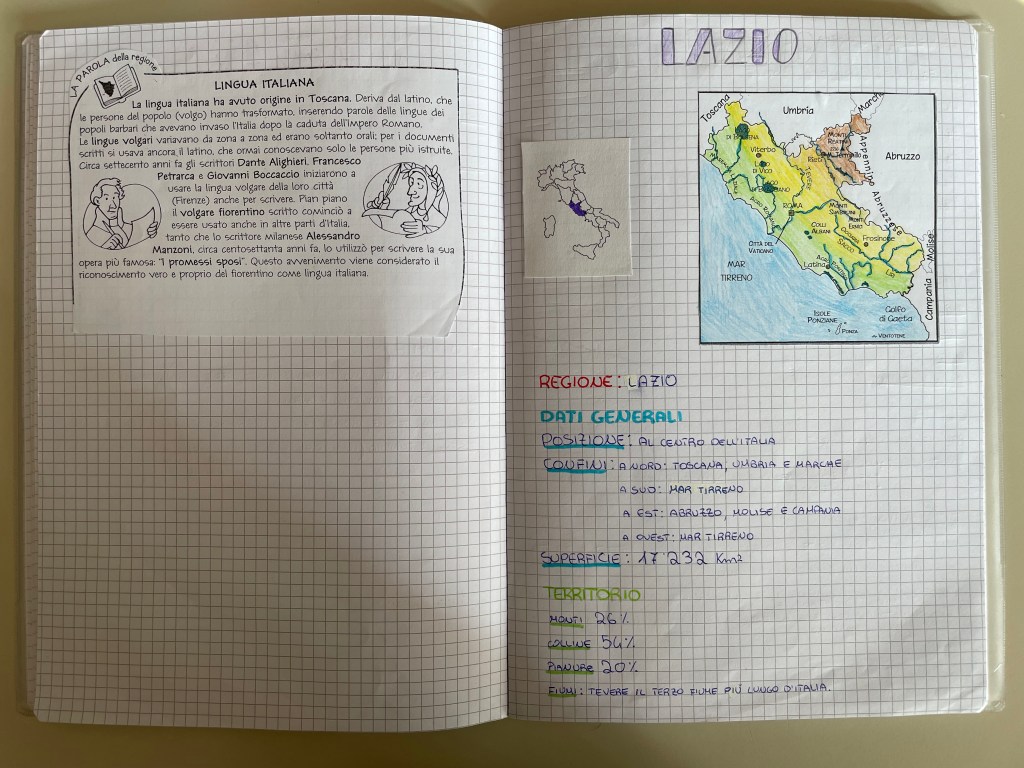 LA PAROLA della regione
LINGUA ITALIANA
La lingua italiana ha avuto origine in Toscana. Deriva dal latino, che
le persone del popolo (volgo) hanno trasformato, inserendo parole delle lingue dei
popoli barbari che avevano invaso l'Italia dopo la caduta dell'Impero Romano.
Le lingue volgari variavano da zona a zona ed erano soltanto orali; per i documenti
scritti si usava ancora il latino, che ormai conoscevano solo le persone più istruite.
Circa settecento anni fa gli scrittori Dante Alighieri, Francesco
Petrarca e Giovanni Boccaccio iniziarono a
usare la lingua volgare della loro città
(Firenze) anche per scrivere. Pian piano
il volgare fiorentino scritto cominciò a
essere usato anche in altre parti d'Italia,
tanto che lo scrittore milanese Alessandro
Manzoni, circa centosettanta anni fa, lo utilizzò per scrivere la sua
opera più famosa: "I promessi sposi". Questo avvenimento viene considerato il
riconoscimento vero e proprio del fiorentino come lingua italiana.
LAZIO
Toscana
Umbria
Marche
Abruzzo
Appennino Abruzzese
Viterbo
DI VICO
Rieti
M. Terminillo
TEVERE
ROMA
CITTÀ DEL
VATICANO
COLLI
ALBANI
MONTI
SIMBRUINI
MONTI
ERNICI
Frosinone
SACCO
Latina
MAR
TIRRENO
Molise
Campania
Golfo
di Gaeta
ISOLE
PONZIANE
PONZA
VENTOTENE
REGIONE: LAZIO
DATI GENERALI
POSIZIONE: AL CENTRO DELL'ITALIA
CONFINI: A NORD: TOSCANA, UMBRIA E MARCHE
A SUD: MAR TIRRENO
A EST: ABRUZZO, MOLISE E CAMPANIA
A OVEST: MAR TIRRENO
SUPERFICIE: 17'232 Km²
TERRITORIO
MONTI 26%
COLLINE 54%
PIANURE 20%
FIUMI: TEVERE IL TERZO FIUME PIÙ LUNGO D'ITALIA.